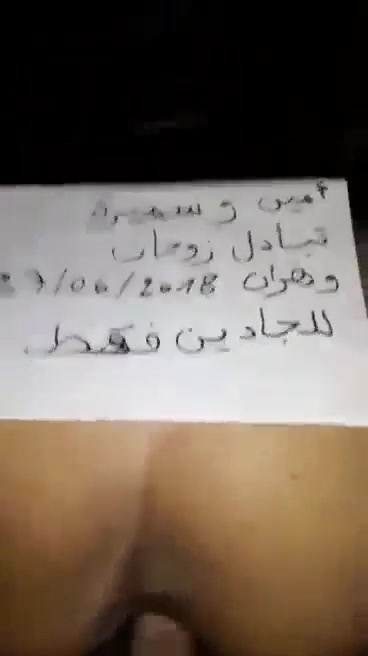 أمين و سميرة
تبادل زوجات
وهران 27/06/2018
للجادين فقط